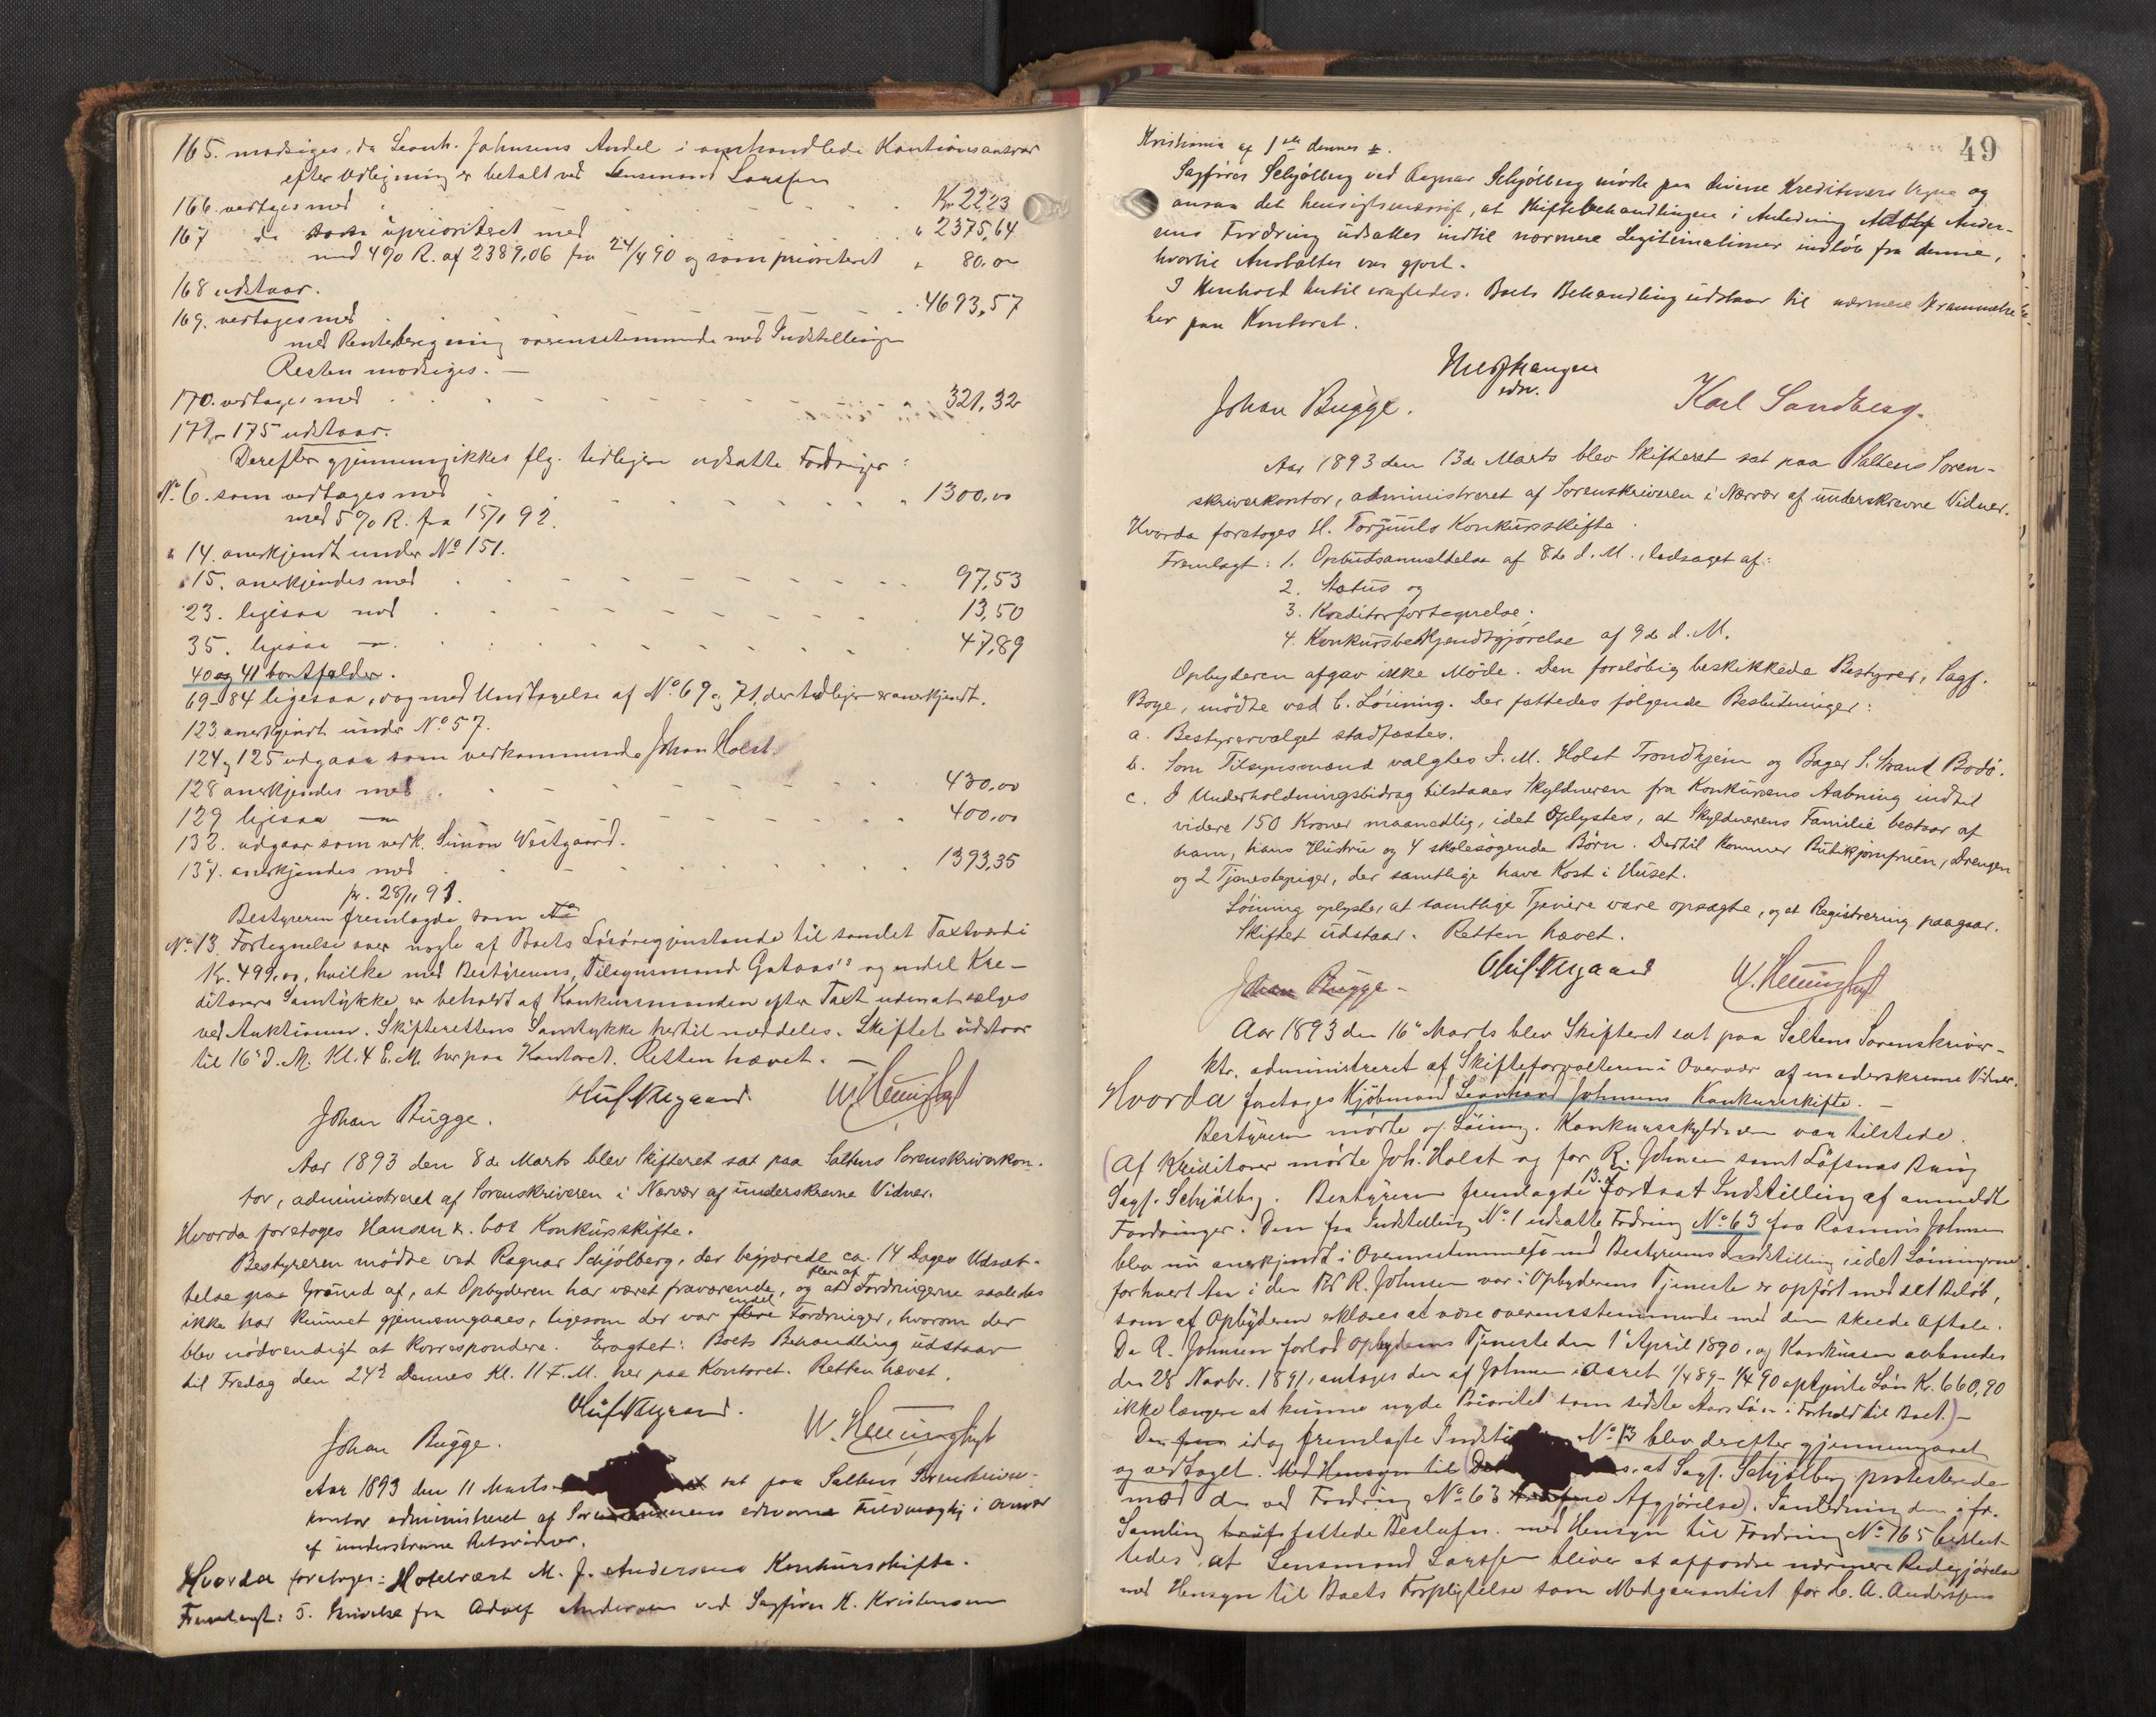 165. modsiges, da Leonh. Johnsens Andel i omhandlede Kautionsansvar
efter Udligning er betalt ved Lensmand Larssen
166. vedtages med Kr. 22,23
167 do som uprioriteret med " 2375,64
med 4% R. af 2389,06 fra 24/4 90 og som prioriteret " 80,00
168 udstaar.
169. vedtages med 4693,57
med Renteberegning overensstemmende med Indstillingen
Resten modsiges. —
170. vedtages med 321,32
171-175 udstaar.
Derefter gjennemgikkes flg. tidligere udsatte Fordringer:
No 6. som vedtages med 1300,00
med 5% R. fra 15/1 92.
" 14. anerkjendt under No 151.
" 15. anerkjendes med 97,53
23. ligesaa med 13,50
35. ligesaa — 47,89
40 og 41 bortfalder.
69-84 ligesaa, dog med Undtagelse af No 69 og 71, der tidligere er anerkjendt.
123 anerkjendt under No 57.
124 og 125 udgaar som vedkommende Johan Holst.
128 anerkjendes med 430,00
129 ligesaa — 400,00
132. udgaar som vedk. Simon Westgaard.
137. anerkjendes med 1393,35
pr. 28/11 91.
Bestyreren fremlagde som No
No 13. Fortegnelse over nogle af Boets Løsøregjenstande til samlet Taxtværdi
Kr. 499,00, hvilke med Bestyrerens, Tilsynsmand Gataas's og endel Kre-
ditorers Samtykke er beholdt af Konkursmanden efter Taxt uden at sælges
ved Auktionen. Skifterettens Samtykke hertil meddeles. Skiftet udstaar
til 16de d. M. Kl. 4 E.M. her paa Kontoret. Retten hævet. —
Johan Bugge.
Aar 1893 den 8de Marts blev Skifteret sat paa Saltens Sorenskriverkon-
tor, administreret af Sorenskriveren i Nærvær af underskrevne Vidner.
Hvorda foretoges Hansen & Cos Konkursskifte.
Bestyreren mødte ved Ragnar Schjølberg, der begjærede ca. 14 Dages Udsæt-
telse paa Grund af, at Opbyderen har været fraværende, og at flere af Fordringerne saaledes
ikke har kunnet gjennemgaaes, ligesom der var endel flere Fordringer, hvorom der
blev nødvendigt at korrespondere. Eragtet: Boets Behandling udstaar
til Fredag den 24de dennes Kl. 11 F.M. her paa Kontoret. Retten hævet.
Johan Bugge.
Aar 1893 den 11 Marts sat paa Saltens Sorenskriver-
kontor administreret af Sorenskriverens edsvorne Fuldmægtig i Overvær
af underskrevne Retsvidner.
Hvorda foretoges: Hotelvært M. J. Andersens Konkursskifte.
Fremlagt: 5. Skrivelse fra Adolf Andersen ved Sagfører K. Kristensen
49
Kristiania af 1ste dennes.
Sagfører Schjølberg ved Ragnar Schjølberg mødte paa diverse Kreditorers Vegne og
ansaa det hensigtsmæssigt, at Skiftebehandlingen i Anledning Adolf Ander-
sens Fordring udsattes indtil nærmere Legitimationer indløb fra denne,
hvortil Anstalter var gjort.
I Henhold hertil eragtedes: Boets Behandling udstaar til nærmere Berammelse
her paa Kontoret.
edsv.
Johan Bugge. Karl Sandberg.
Aar 1893 den 13de Marts blev Skifteret sat paa Saltens Soren-
skriverkontor, administreret af Sorenskriveren i Nærvær af underskrevne Vidner.
Hvorda foretoges H. Torjuuls Konkursskifte.
Fremlagt: 1. Opbudsanmeldelse af 8de d. M., ledsaget af:
2. Status og
3. Kreditorfortegnelse;
4. Konkursbekjendtgjørelse af 9de d. M.
Opbyderen afgav ikke Møde. Den foreløbig beskikkede Bestyrer, Sagf.
Boye, mødte ved C. Lòining. Der fattedes følgende Beslutninger:
a. Bestyrervalget stadfæstes.
b. Som Tilsynsmænd valgtes I. M. Holst Trondhjem og Bager S. Strand Bodø.
c. I Underholdningsbidrag tilstaaes Skyldneren fra Konkursens Aabning indtil
videre 150 Kroner maanedlig, idet Oplystes, at Skyldnerens Familie bestaar af
ham, hans Hustru og 4 skolesøgende Børn. Dertil kommer Butikjomfruen, Drengen
og 2 Tjenestepiger, der samtlige have Kost i Huset.
Lòining oplyste, at samtlige Tjenere vare opsagte, og at Registrering paagaar.
Skiftet udstaar. Retten hævet.
Johan Bugge —
Aar 1893 den 16de Marts blev Skifteret sat paa Saltens Sorenskriver-
ktr. administreret af Skifteforvalteren i Overvær af underskrevne Vidner.
Hvorda foretoges Kjøbmand Leonhard Johnsens Konkursskifte. —
Bestyreren mødte ved Lòining. Konkursskyldneren var tilstede.
(Af Kreditorer mødte Joh. Holst og for R. Johnsen samt Löfsnæs Brug
Sagf. Schjølberg. Bestyreren fremlagde 13. Fortsat Indstilling af anmeldte
Fordringer. Den fra Indstilling No 1 udsatte Fordring No 63 fra Rasmus Johnsen
blev nu anerkjendt i Overensstemmelse med Bestyrerens Indstilling, idet Lønningerne
for hvert Aar i den Tid R. Johnsen var i Opbyderens Tjeneste er opført med det Beløb,
som af Opbyderen erklæres at være overensstemmende med den skeede Aftale.
Da R. Johnsen forlod Opbyderens Tjeneste den 1ste April 1890, og Konkursen aabnedes
den 28 Novbr. 1891, antages den af Johnsen i Aaret 1/4 89 - 1/4 90 optjente Løn Kr. 660,90
ikke længere at kunne nyde Prioritet som sidste Aars Løn i Forhold til Boet.) —
Den fra idag fremlagte No 13 blev derefter gjennemgaaet
og vedtaget. Med Hensyn til at Sagf. Schjølberg protesterede
mod den ved Fordring No 63 Afgjørelse). I Anledning den i fr.
Samling fattede Beslutn. med Hensyn til Fordring No 165 beslut-
tedes, at Lensmand Larssen bliver at affordre nærmere Redegjørelse
med Hensyn til Boets Forpligtelse som Medgarantist for C. A. Anderssens